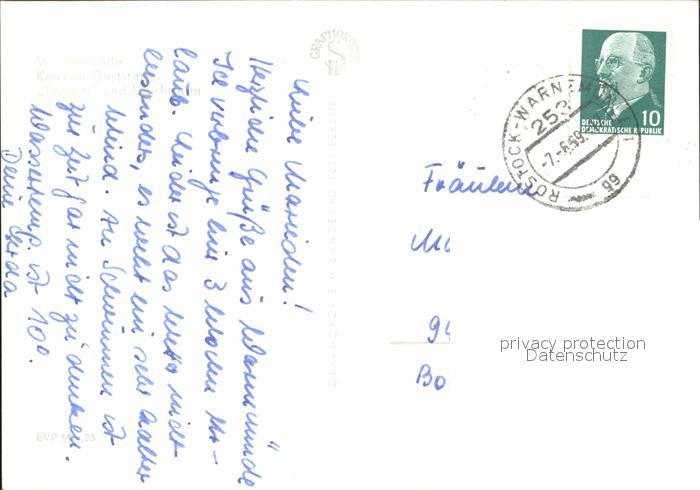 Warnemünde
Konsum-Gaststätte
"Teepott" und Leuchtturm
Herzliche Grüße aus Warnemünde
Ich verbringe hier 3 Wochen Ur-
laub. Leider ist das Wetter nicht
besonders, es weht ein sehr kalter
Wind. An Schwimmen ist
zur Zeit gar nicht zu denken.
Wassertemp. ist 10°.
Deine Gerda
EVP M 0,25
GRAPHOKOPIE
GRAPHOKOPIE H. SANDER KG BERLIN
ROSTOCK-WARNEMÜNDE 1
253
-7.-6.69
99
10
DEUTSCHE
DEMOKRATISCHE REPUBLIK
Fräulein
M
94
Bo
privacy protection
Datenschutz